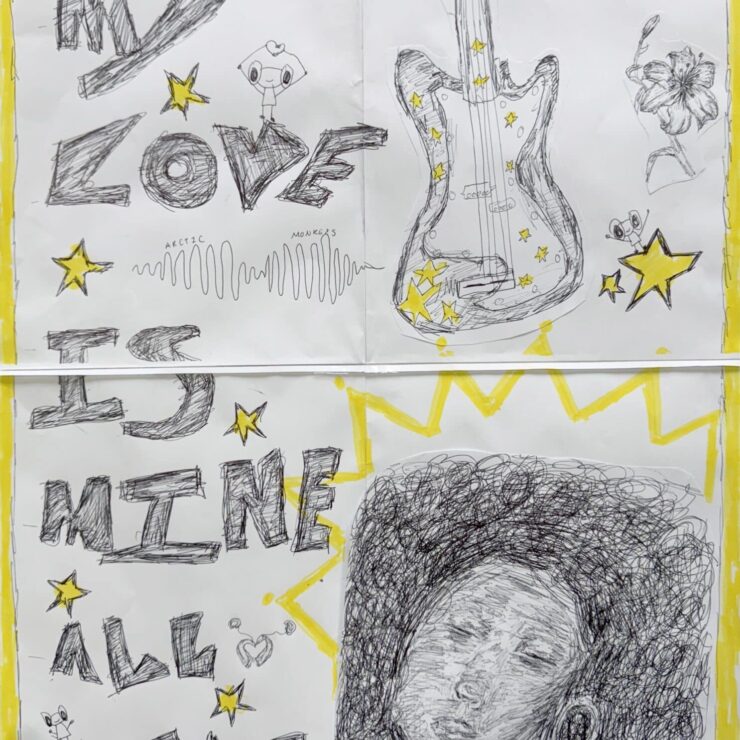 MY
LOVE
ARCTIC MONKEYS
IS
MINE
ALL